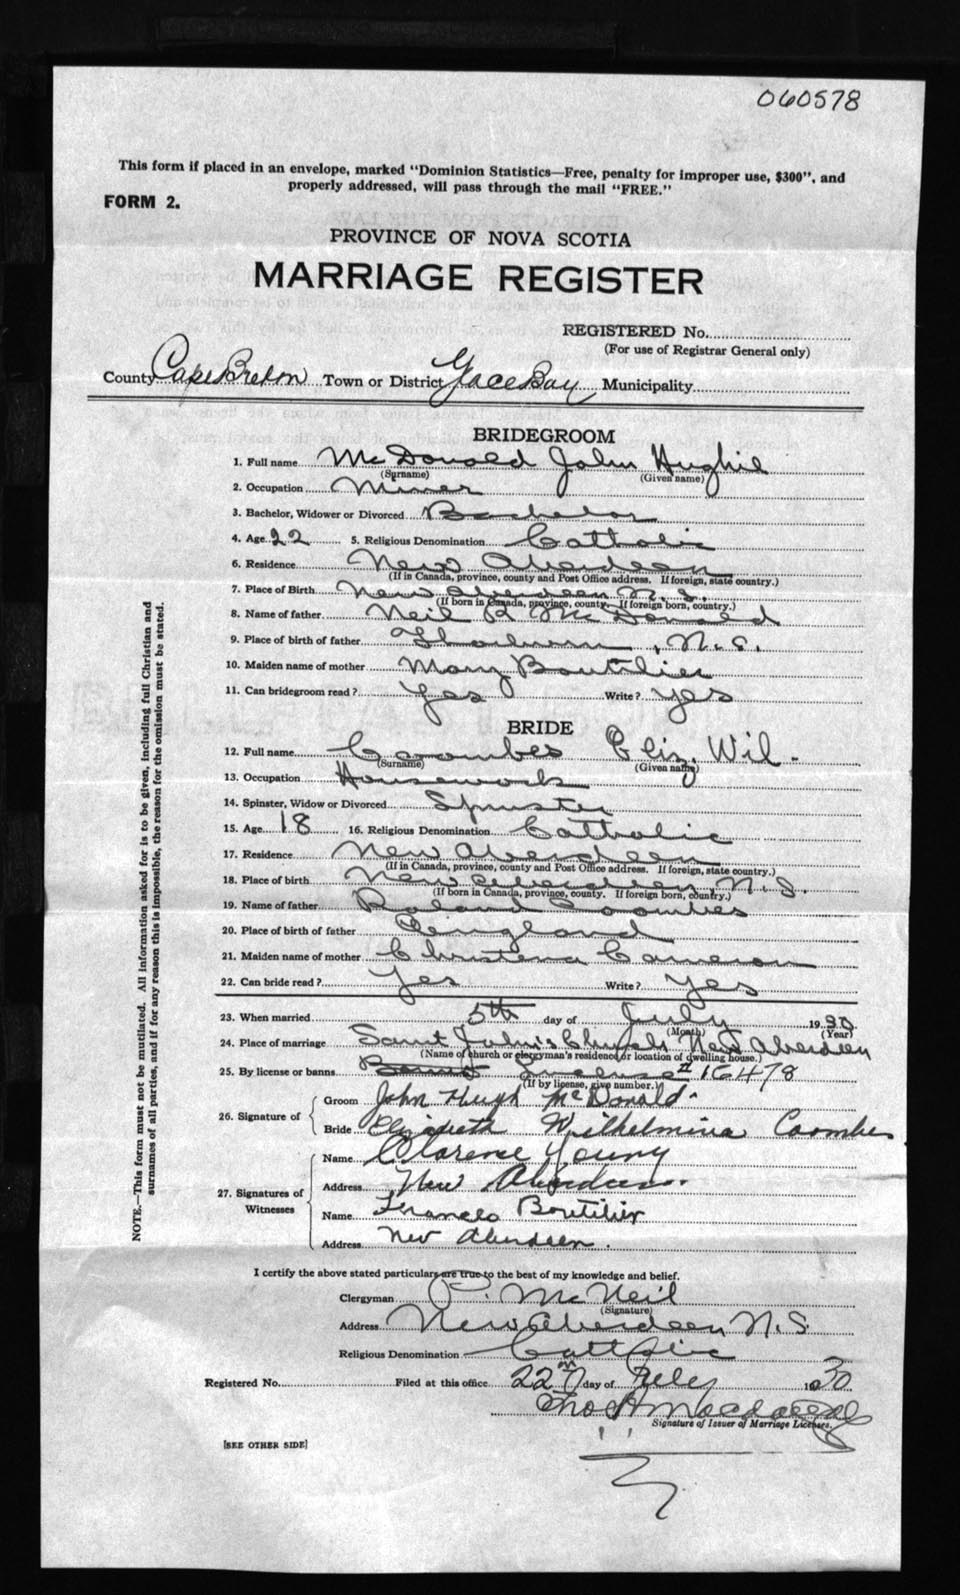 060578
This form if placed in an envelope, marked "Dominion Statistics—Free, penalty for improper use, $300", and
properly addressed, will pass through the mail "FREE."
FORM 2.
PROVINCE OF NOVA SCOTIA
MARRIAGE REGISTER
REGISTERED No.
(For use of Registrar General only)
County Cape Breton Town or District Glace Bay Municipality
BRIDEGROOM
1. Full name McDonald John Hughie
(Surname) (Given name)
2. Occupation Miner
3. Bachelor, Widower or Divorced Bachelor
4. Age 22 5. Religious Denomination Catholic
6. Residence New Aberdeen
(If in Canada, province, county and Post Office address. If foreign, state country.)
7. Place of Birth New Aberdeen N.S.
(If born in Canada, province, county. If foreign born, country.)
8. Name of father Neil R McDonald
9. Place of birth of father , N.S.
10. Maiden name of mother Mary Boutilier
11. Can bridegroom read? Yes Write? Yes
BRIDE
12. Full name Coombes Eliz. Wil.
(Surname) (Given name)
13. Occupation Housework
14. Spinster, Widow or Divorced Spinster
15. Age 18 16. Religious Denomination Catholic
17. Residence New Aberdeen
(If in Canada, province, county and Post Office address. If foreign, state country.)
18. Place of birth New Aberdeen N.S.
(If born in Canada, province, county. If foreign born, country.)
19. Name of father Roland Coombes
20. Place of birth of father England
21. Maiden name of mother Christena Cameron
22. Can bride read? Yes Write? Yes
23. When married 5th day of July 1930
(Month) (Year)
24. Place of marriage Saint John's Church New Aberdeen
(Name of church or clergyman's residence or location of dwelling house.)
25. By license or banns License # 16478
(If by license, give number.)
26. Signature of Groom John Hugh McDonald.
Bride Elizabeth Wilhelmina Coombes
27. Signatures of Witnesses Name Clarence Young
Address New Aberdeen.
Name Frances Boutilier
Address New Aberdeen.
I certify the above stated particulars are true to the best of my knowledge and belief.
Clergyman McNeil
(Signature)
Address New Aberdeen N.S.
Religious Denomination Catholic
Registered No. Filed at this office 22 day of July 1930
Signature of Issuer of Marriage Licenses.
[SEE OTHER SIDE]
NOTE.—This form must not be mutilated. All information asked for is to be given, including full Christian and
surnames of all parties, and if for any reason this is impossible, the reason for the omission must be stated.